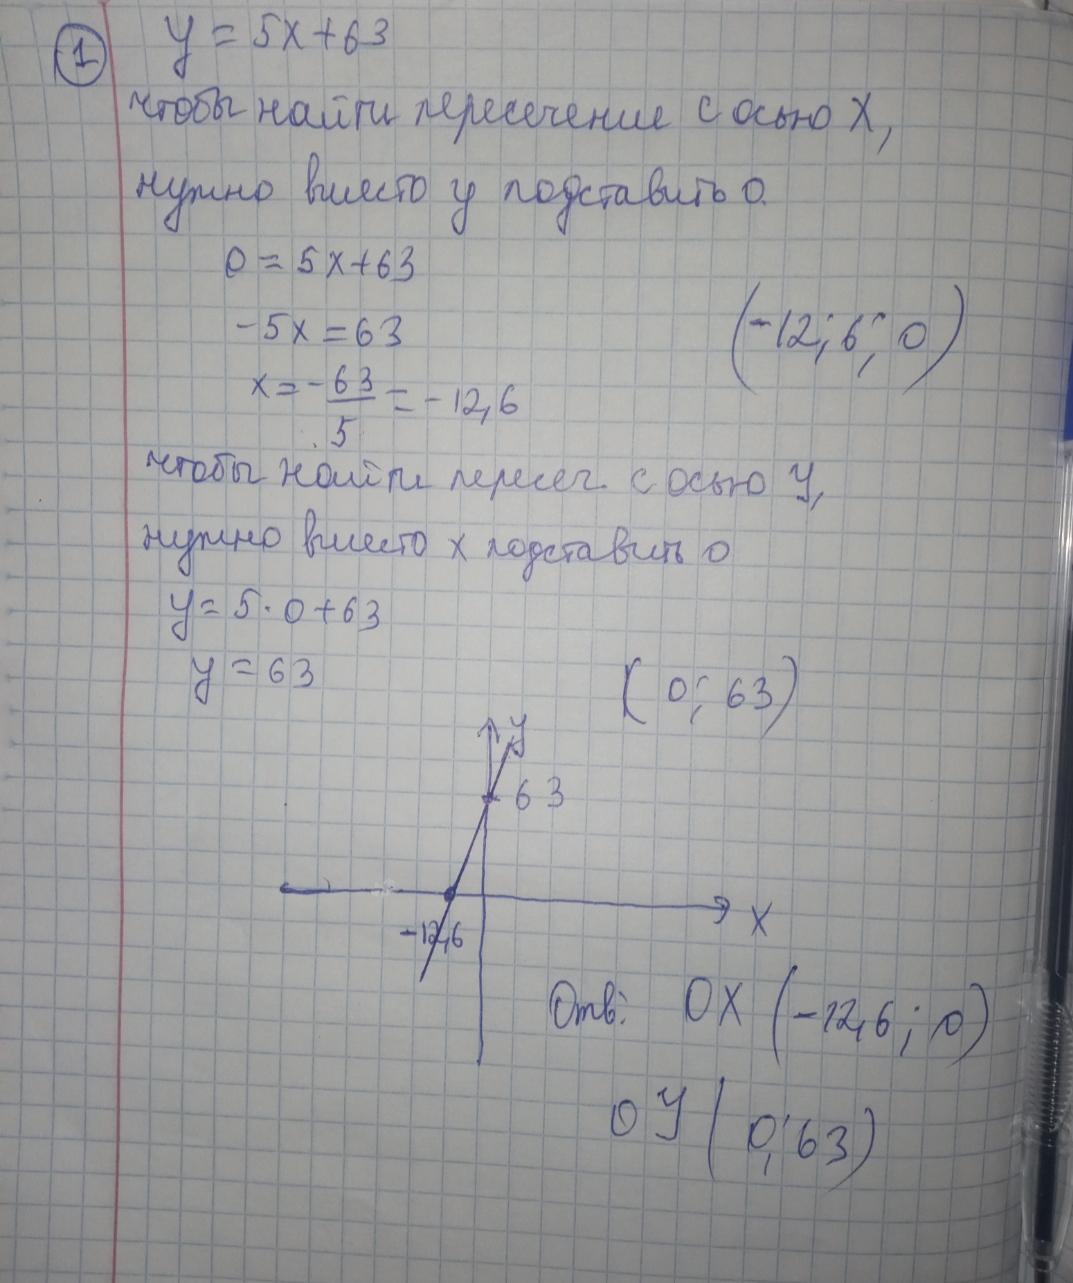 1 y = 5x+63
чтобы найти пересечение с осью X,
нужно вместо y подставить 0.
0 = 5x+63
-5x = 63
(-12; 6; 0)
x = -63/5 = -12,6
чтобы найти пересеч. с осью y,
нужно вместо x подставить 0
y = 5·0+63
y = 63
(0; 63)
y
63
X
-12,6
Отв: OX (-12,6; 0)
OY (0; 63)